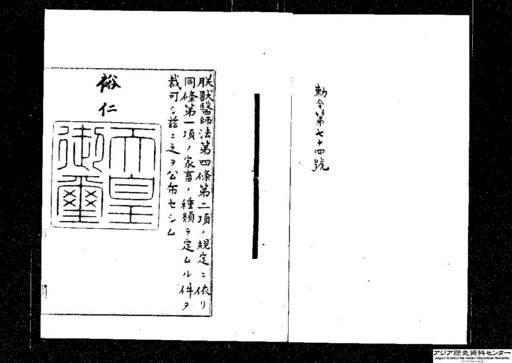 勅令第七十四號
朕獸醫師法第四條第二項ノ規定ニ依リ
同條第一項ノ家畜ノ種類ヲ定ムル件ヲ
裁可シ茲ニ之ヲ公布セシム
裕仁
天皇
御璽
アジア歴史資料センター
Japan Center for Asian Historical Records